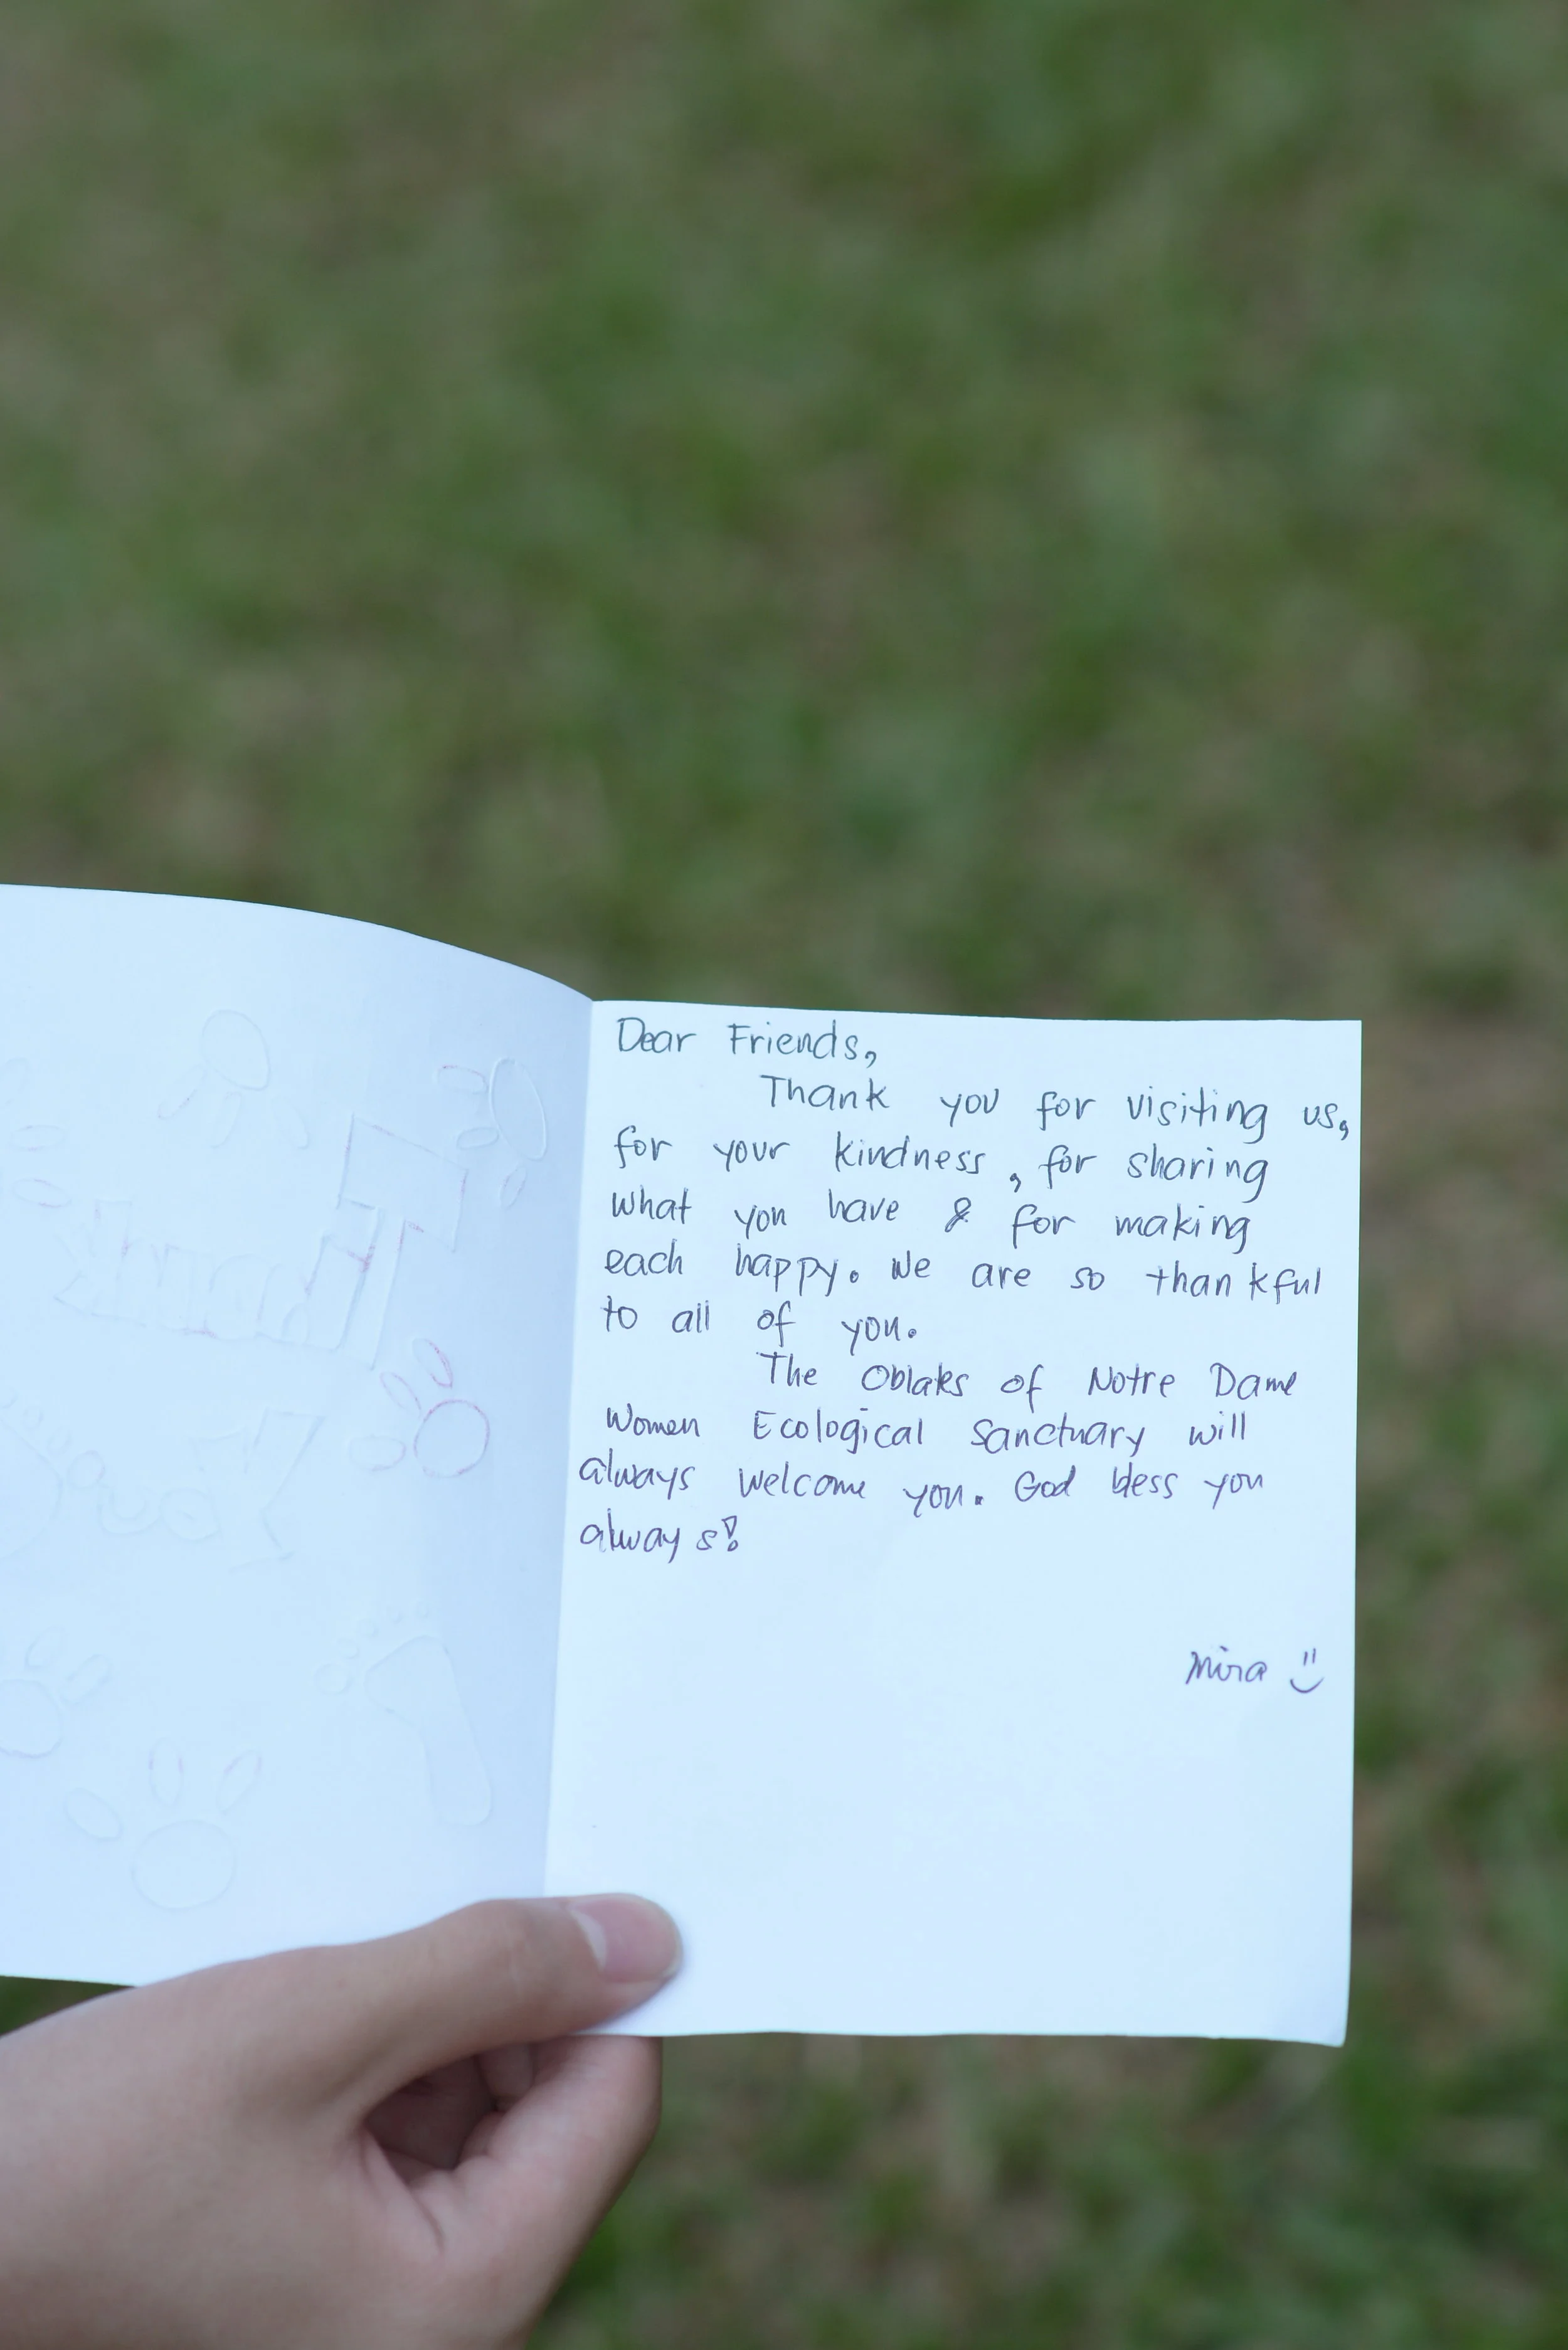 Dear Friends,
Thank you for visiting us,
for your kindness, for sharing
what you have & for making
each happy. We are so thankful
to all of you.
The Oblates of Notre Dame
Women Ecological Sanctuary will
always welcome you. God bless you
always!
Mira
Thank
You